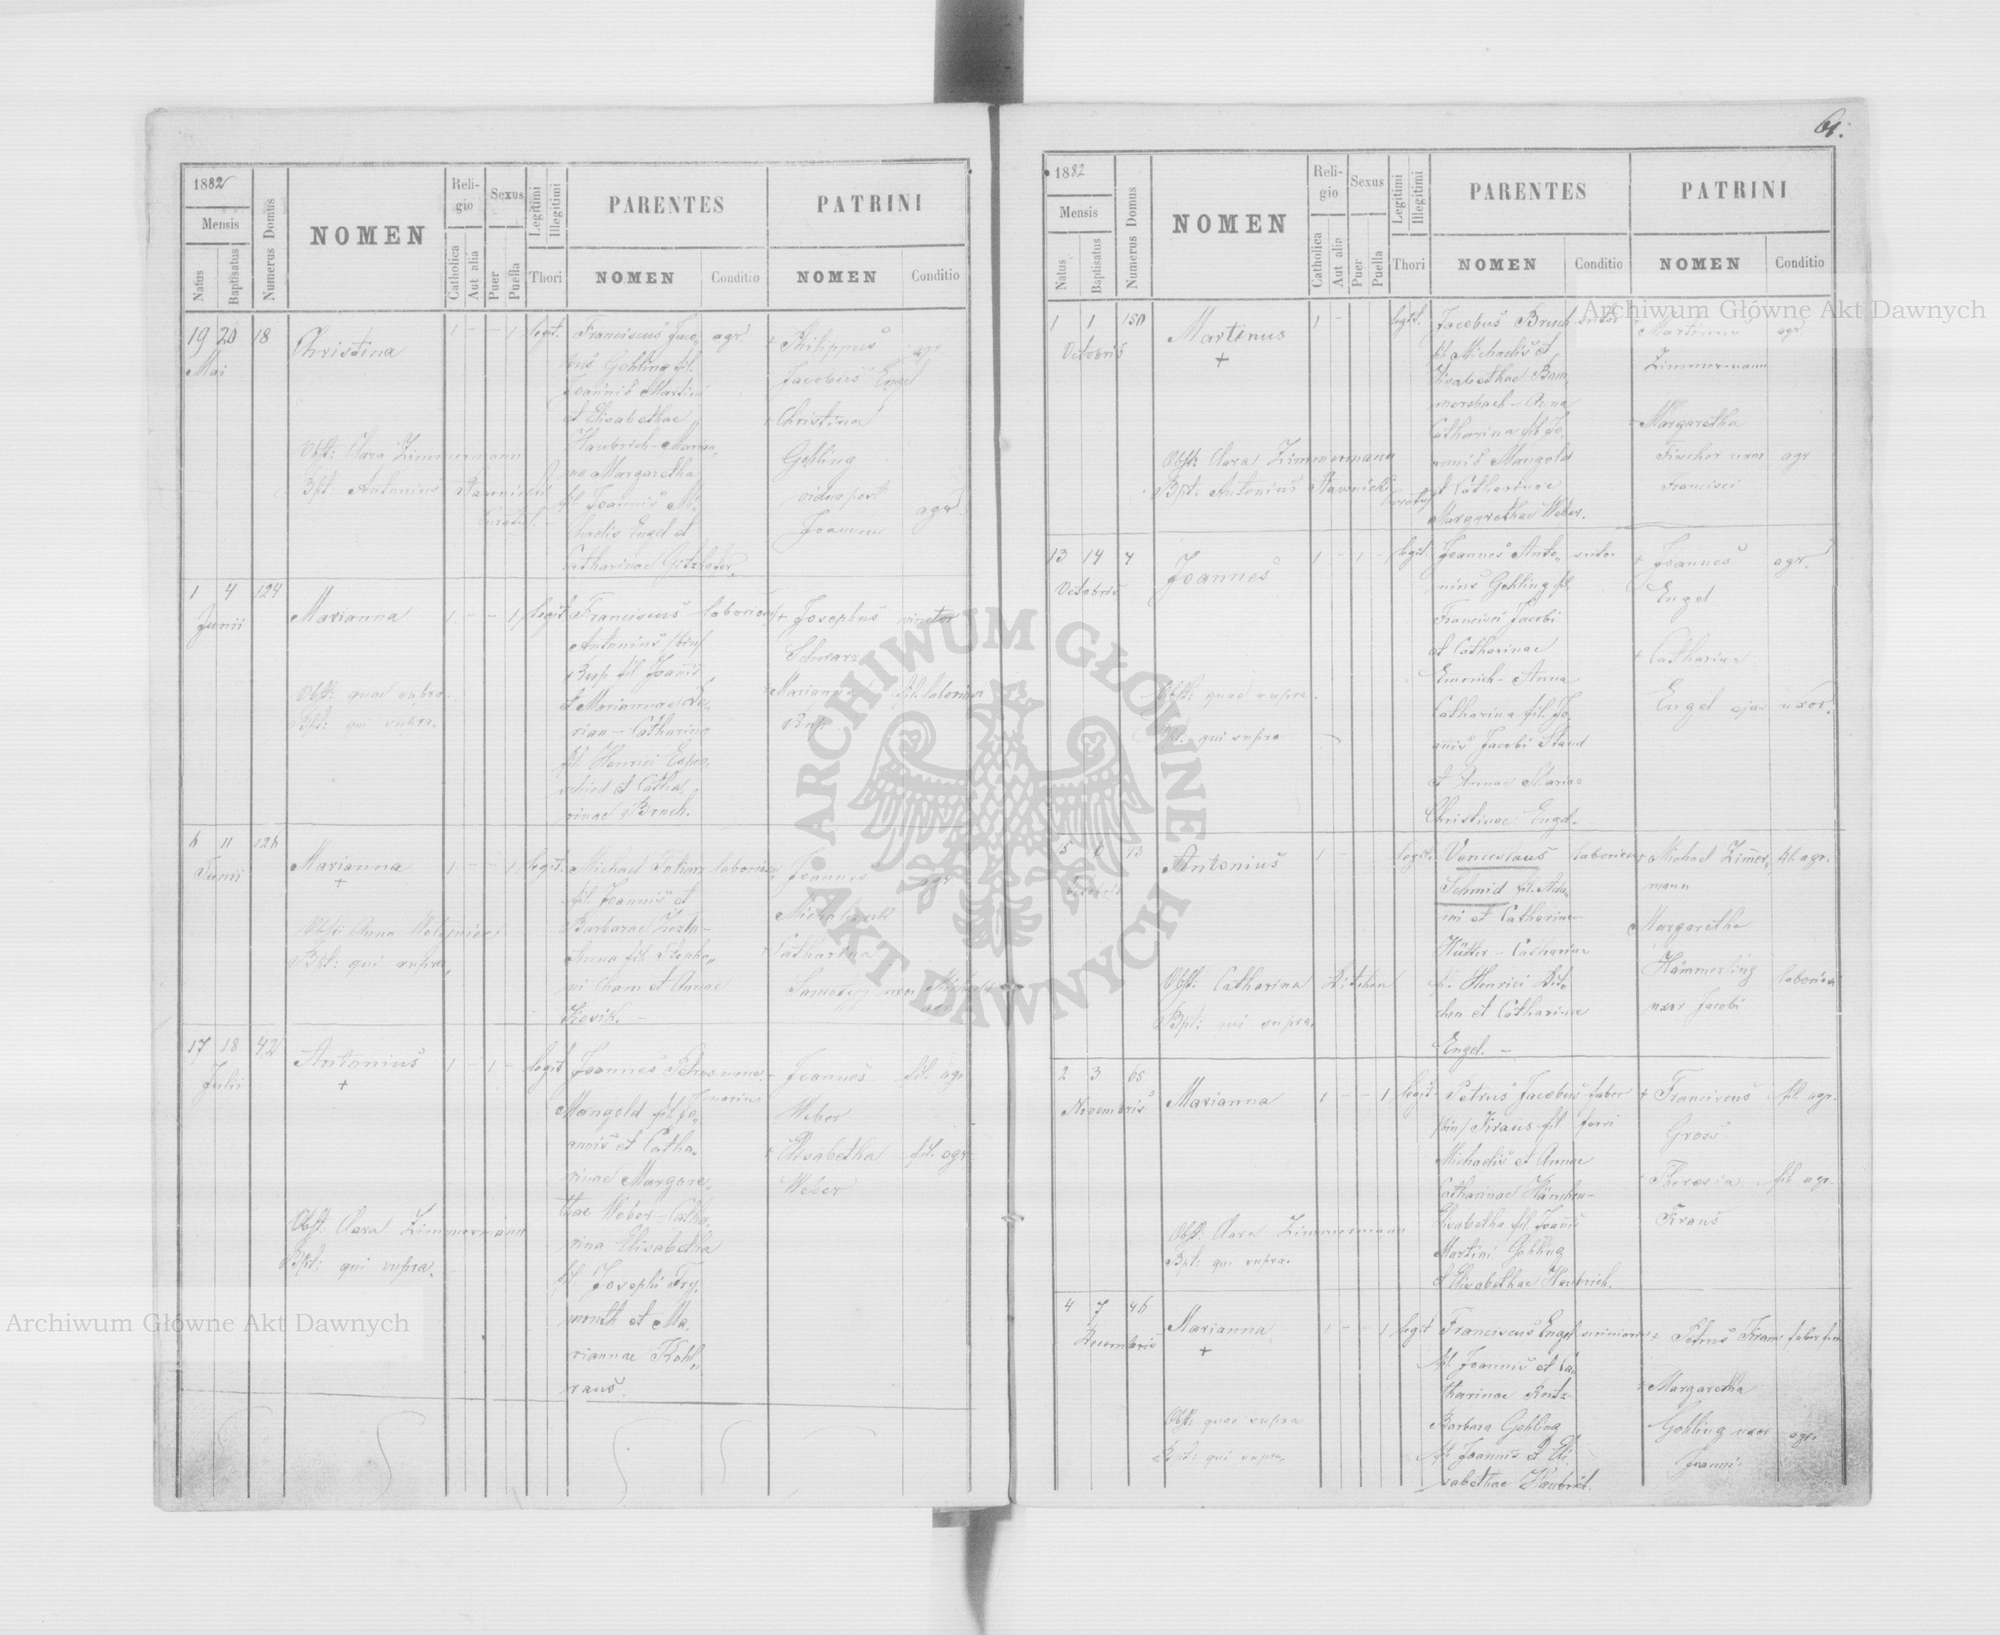 61.
1882
Mensis
Natus
Baptisatus
Numerus Domus
NOMEN
Reli-
gio
Catholica
Aut alia
Sexus
Puer
Puella
Legitimi
Illegitimi
Thori
PARENTES
NOMEN
Conditio
PATRINI
NOMEN
Conditio
19 20 18
Mai
Christina
1 - - 1 legit.
Franciscus Jaco
bus Gohling fil.
Joannis Martini
et Elisabethae
Haubrich - Marian
na Margaretha
fil. Joannis Mi
chaelis Engel et
Catharinae
agr.
Philippus
Jacobus Engel
agr.
Christina
Gohling
Joannem
agr.
Obst: Clara Zimmermann
Bpt: Antonius
1 4 124
Junii
Marianna
1 - - 1 legit
Franciscus
Antonius /bin/
Rup fil. Joannis
et Mariannae
rian - Catharina
fil. Henrici
schied et Catha
rinae Bruch.
Josephus
Schwarz
Marianna
Rup
Obst: quae supra.
Bpt: qui supra.
6 11 126
Junii
Marianna
+
1 - - 1 legit.
Michael
fil. Joannis et
Barbarae
Anna fil. Stepha
ni et Annae
Joannes
agr
Catharina
uxor Michaelis
agr
Obst: Anna
Bpt: qui supra.
17 18 42
Julii
Antonius
+
1 - 1 - legit
Joannes Petrus
Mangold fil. Jo
annis et Catha
rinae Margare
thae Weber - Catha
rina Elisabetha
fil. Josephi Fry
month et Ma
riannae Kohl
raus.
Joannes fil. agr
Weber
Elisabetha fil. agr.
Weber
Obst. Clara Zimmermann
Bpt: qui supra.
1882
Mensis
Natus
Baptisatus
Numerus Domus
NOMEN
Reli-
gio
Catholica
Aut alia
Sexus
Puer
Puella
Legitimi
Illegitimi
Thori
PARENTES
NOMEN
Conditio
PATRINI
NOMEN
Conditio
1 1 150
Octobris
Martinus
+
1 - legit.
Jacobus Bruch sutor
fil. Michaelis et
Elisabethae Bam
mersbach - Anna
Catharina fil. Jo
annis Mangold
et Catharinae
Margarethae Weber.
Martinus agr.
Zimmermann
Margaretha
Fischer uxor agr
Francisci
Obst: Clara Zimmermann
Bpt: Antonius
13 14 7
Octobris
Joannes
1 - 1 - legit.
Joannes Anto sutor
nius Gohling fil.
Francisci Jacobi
et Catharinae
Emerich - Anna
Catharina fil. Jo
annis Jacobi Staud
et Annae Mariae
Christinae Engel.
Joannes agr.
Engel
Catharina
Engel ejus uxor.
Obst: quae supra.
Bpt. qui supra
5 6 13
Antonius
1 - legit.
Venceslaus
Schmid fil. Ada
mi et Catharinae
Hütter - Catharina
fil. Henrici Dit
chen et Catharinae
Engel. -
Michael Zimmer fil. agr.
mann
Margaretha
Hämmerling
uxor Jacobi
Obst: Catharina Ditchen
Bpt: qui supra.
2 3 65
Novembris
Marianna
1 - - 1 legit
Petrus Jacobus faber
/bin/ Kraus fil ferri
Michaelis et Annae
Catharinae
Elisabetha fil. Joannis
Martini Gohling
et Elisabethae Haubrich.
Franciscus fil. agr.
Gross
Theresia fil. agr.
Kraus
Obst: Clara Zimmermann
Bpt: qui supra.
4 7 46
Decembris
Marianna
+
1 - - 1 legit
Franciscus Engel
fil. Joannis et Ca
tharinae
Barbara Gohling
fil. Joannis et Eli
sabethae Haubrich.
Petrus Kraus faber
Margaretha
Gohling uxor agr.
Joannis
Obst: quae supra
Bpt: qui supra.
Archiwum Główne Akt Dawnych
Archiwum Główne Akt Dawnych
ARCHIWUM GŁÓWNE AKT DAWNYCH